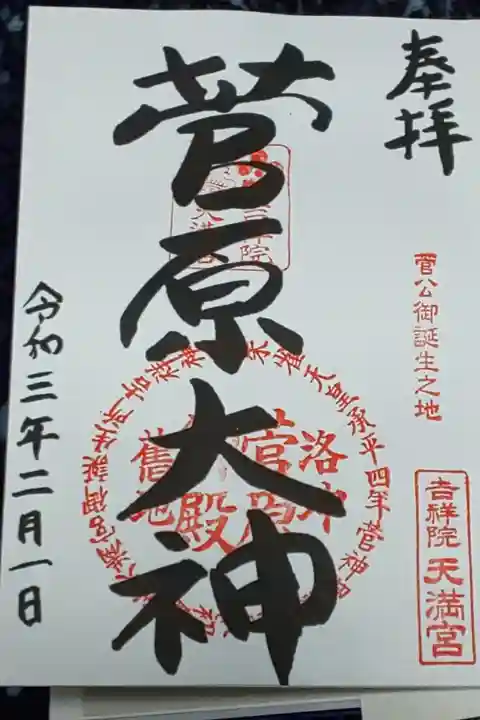 奉拝
菅公御誕生之地
吉祥院天満宮
菅原大神
朱雀天皇承平四年菅神
洛中
菅原
殿
舊地
令和三年二月一日